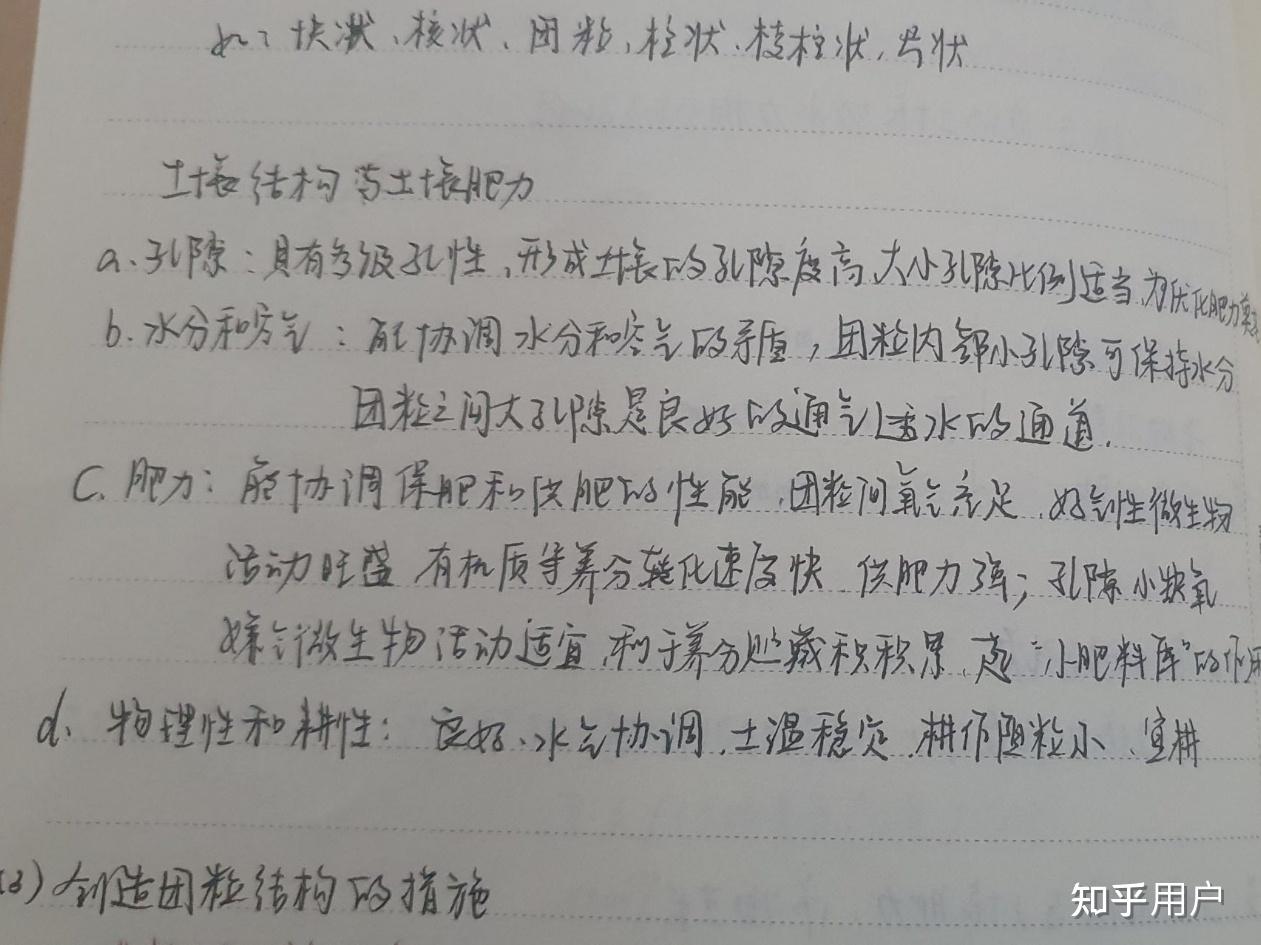 如：块状、核状、团粒、柱状、棱柱状、片状
土壤结构与土壤肥力
a. 孔隙：具有多级孔性，形成土壤的孔隙度高，大小孔隙比例适当，为优化肥力奠
b. 水分和空气：能协调水分和空气的矛盾，团粒内部小孔隙可保持水分
团粒之间大孔隙是良好的通气透水的通道.
C. 肥力：能协调保肥和供肥的性能，团粒间氧气充足，好气性微生物
活动旺盛 有机质等养分转化速度快 供肥力强；孔隙小缺氧
嫌气微生物活动适宜，利于养分贮藏积积累，起"小肥料库"的作用
d. 物理性和耕性：良好、水气协调、土温稳定、耕作阻粒小、宜耕
(3) 创造团粒结构的措施
知乎用户